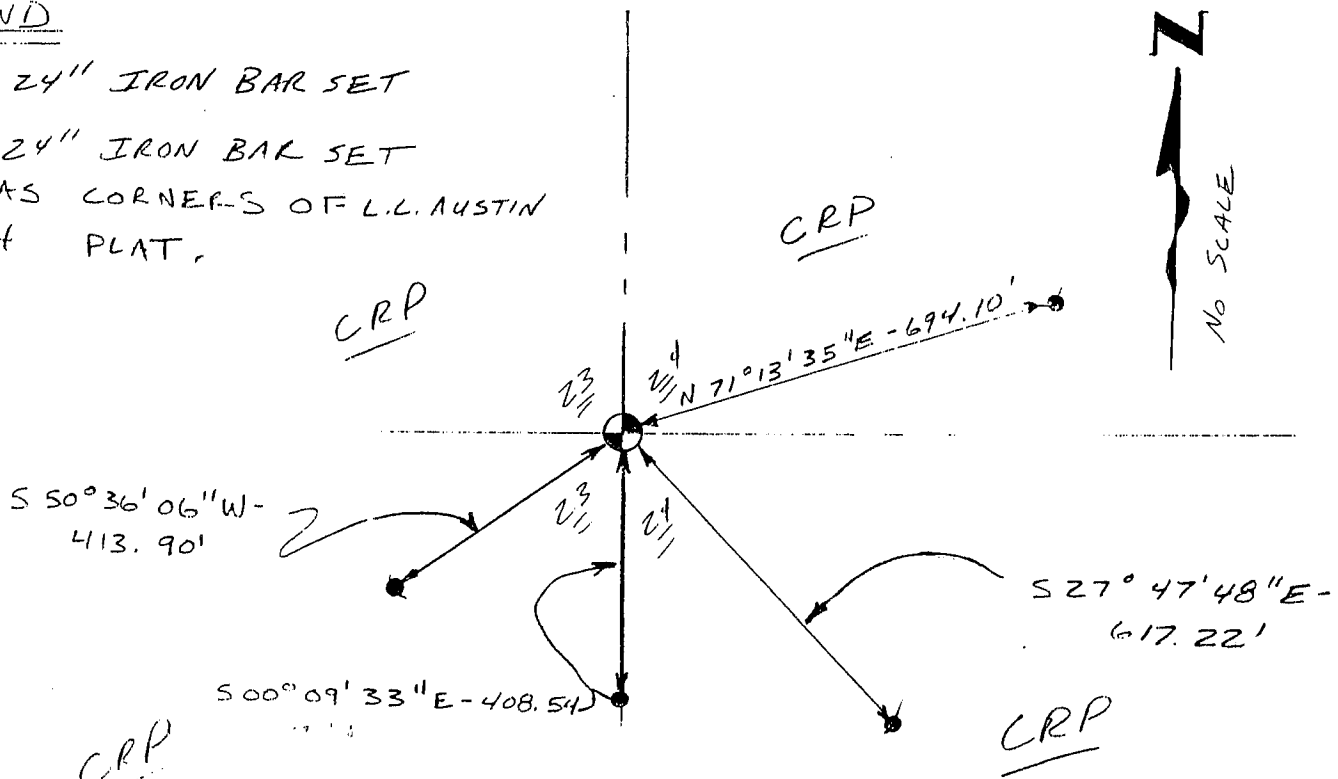 ND
24" IRON BAR SET
24" IRON BAR SET
AS CORNERS OF L.L. AUSTIN
PLAT.
N
NO SCALE
CRP
CRP
N 71°13'35"E - 694.10'
23
24
23
24
S 50°36'06"W-
413.90'
S 27°47'48"E-
617.22'
S 00°09'33"E - 408.54
CRP
CRP